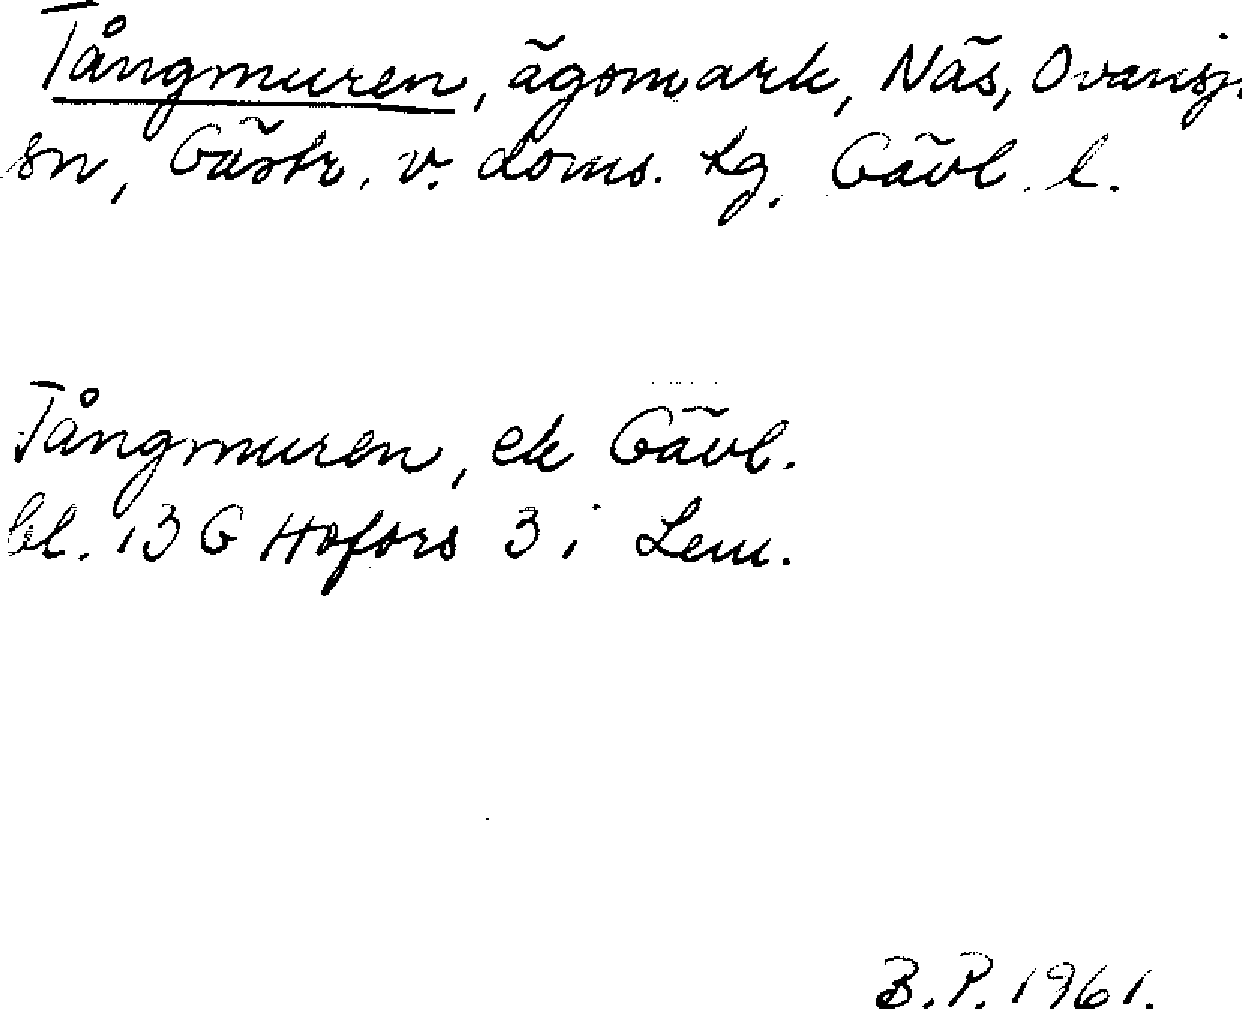 Tångmuren, ägomark, Näs, Ovansj.
sn, Gästr. v. doms. tg. Gävl. l.
Tångmuren, ek Gävl.
bl. 13 G Hofors 3 i
B.P. 1961.